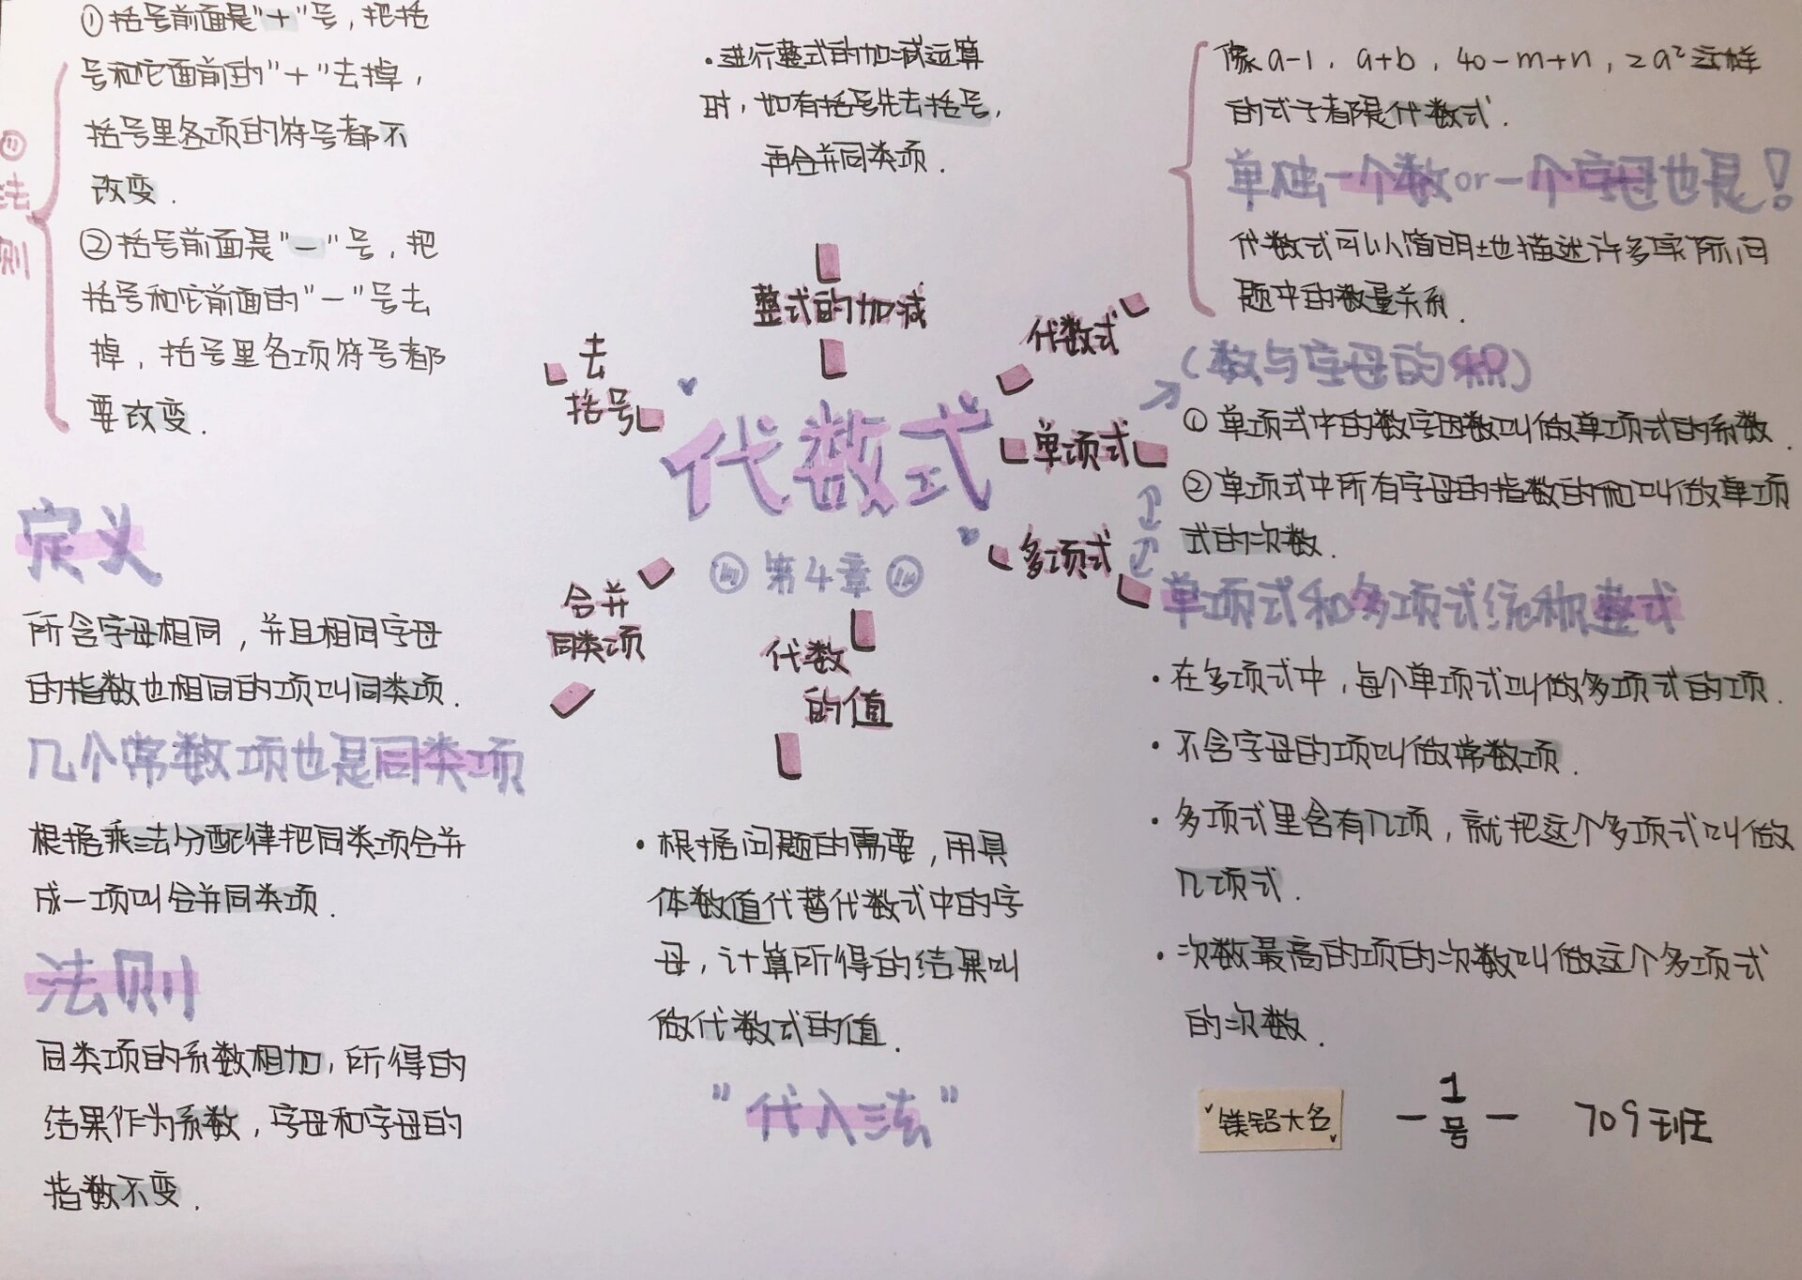 ①括号前面是"+"号，把括
号和它面前的"+"去掉，
括号里各项的符号都不
改变.
②括号前面是"—"号，把
括号和它前面的"—"号去
掉，括号里各项符号都
要改变.
法则
去
括号
·进行整式的加减运算
时，如有括号先去括号，
再合并同类项.
整式的加减
像a-1，a+b，40-m+n，2a²这样
的式子都是代数式.
单独一个数or一个字母也是！
代数式可以简明地描述许多实际问
题中的数量关系.
代数式
代数式
第4章
单项式
（数与字母的积）
①单项式中的数字因数叫做单项式的系数.
②单项式中所有字母的指数的和叫做单项
式的次数.
多项式
单项式和多项式统称整式
·在多项式中，每个单项式叫做多项式的项.
·不含字母的项叫做常数项.
·多项式里含有几项，就把这个多项式叫做
几项式.
·次数最高的项的次数叫做这个多项式
的次数.
合并
同类项
定义
所含字母相同，并且相同字母
的指数也相同的项叫同类项.
几个常数项也是同类项
根据乘法分配律把同类项合并
成一项叫合并同类项.
法则
同类项的系数相加，所得的
结果作为系数，字母和字母的
指数不变.
代数
的值
·根据问题的需要，用具
体数值代替代数式中的字
母，计算所得的结果叫
做代数式的值.
"代入法"
镁铝大名
—1号—
709班